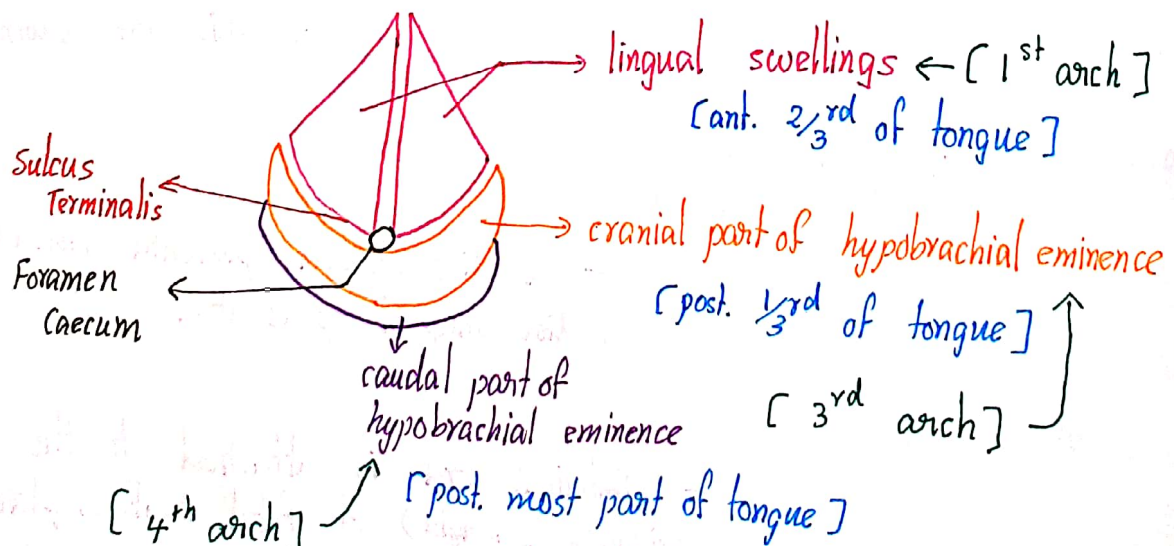 lingual swellings ← [ 1st arch ]
[ant. 2/3rd of tongue ]
Sulcus
Terminalis
cranial part of hypobrachial eminence
[post. 1/3rd of tongue ]
Foramen
Caecum
[ 3rd arch ]
caudal part of
hypobrachial eminence
[post. most part of tongue ]
[ 4th arch ]